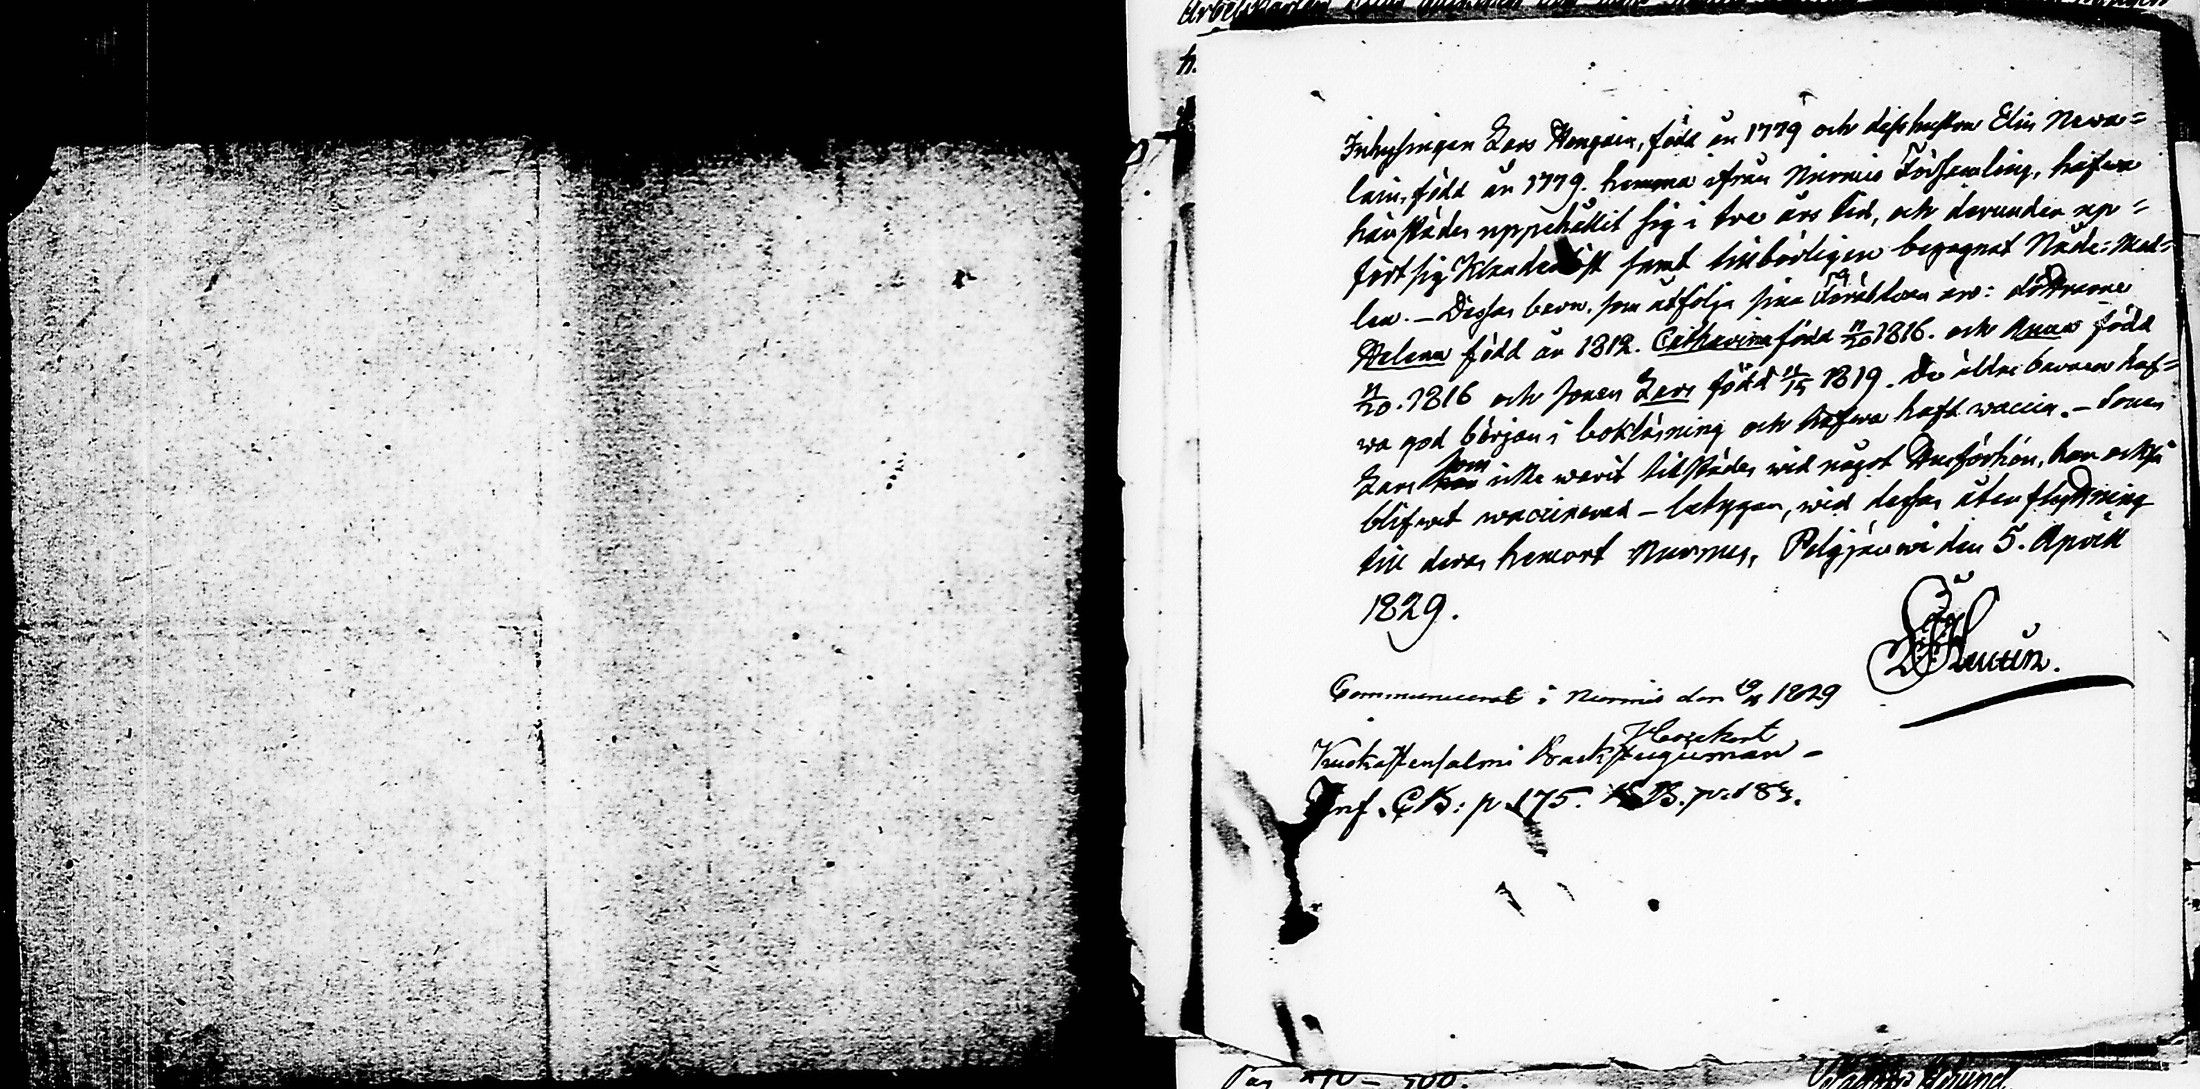 Inhysingen Lars Hengain, född år 1779 och dess hustru Elin Newa=
lain, född år 1779. hemma ifrån Nurmis Församling, hafwa
härstädes uppehållit sig i tre års tid, och derunder up=
fört sig klanderlöst samt tillbörligen begagnat Nåde=Med=
len. – Dessas barn, som åtfölja sina Föräldrar äro: döttrarne
Helena född år 1812. Catharina född 11/20 1816. och Anna född
11/20. 1816 och sonen Lars född 1819. De äldre barnen haf=
wa god början i bokläsning och hafwa haft waccin. – Sonen
Lars som icke warit tillstädes wid något Husförhör, har också
blifwet waccinerad – betygar, wid dessas återflyttning
till deras hemort Nurmes, Pelgjärwi den 5. April
1829.
Communicerat i Nurmis den 19/4 1829
Kuokastensalmi Backstuguman –
Inf. CB: p. 175. p. 183.